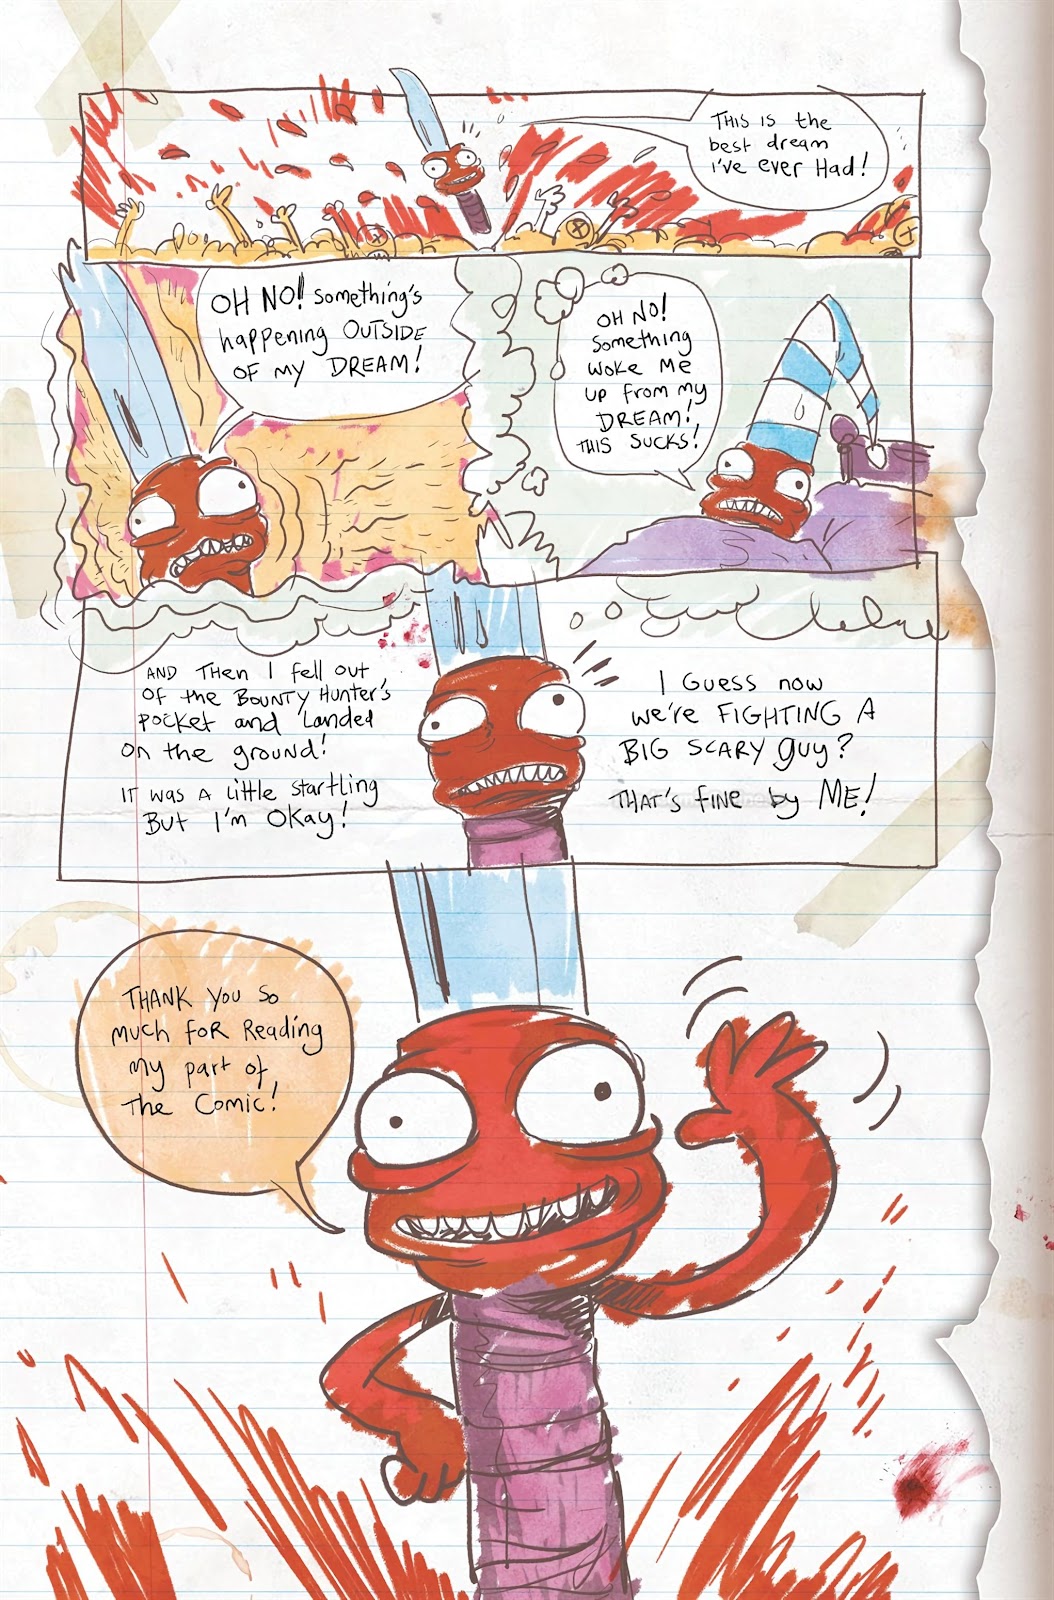 THIS IS the
best dream
i've ever Had!
OH NO! Something's
happening OUTSIDE
OF my DREAM!
OH NO!
Something
WOKE ME
up from my
DREAM!
THIS SUCKS!
AND THEN I fell out
OF the BOUNTY HUNTER'S
POCKET and Landed
on the ground!
IT WAS A little startling
BUT I'm OKay!
I GUESS now
we're FIGHTING A
BIG SCARY guy?
THAT'S fine by ME!
THANK YOU SO
much FOR Reading
my part of
The Comic!